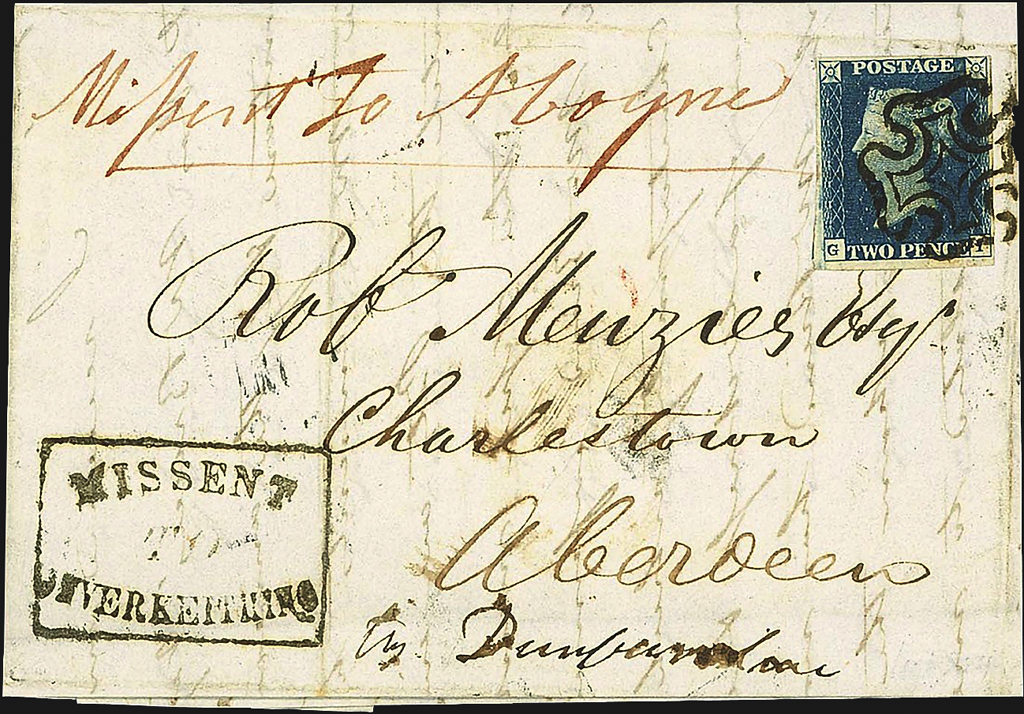 Missent to Aboyne
POSTAGE
G TWO PENCE I
Rob Menzies Esqr
Charlestown
Aberdeen
try Dunfermline
MISSENT
TO
INVERKEITHING